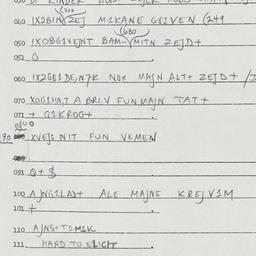 040 IX2BIN ZEJ MIKANE GEIVEN (249
(680
050 IXOBGIVENT BAM-MITN ZEJD+
051 O
060 IX2GB1DE,N7K NOX MAJN ALT+ ZEJD+
070 XOG1HA,T A BRIV FUN MAJN TAT+
071 + G1KROG+
080 O
090 XVEJS NIT FUN VEMEN
091 Q+ $
100 AJNG1LAD+ ALE MAJNE KREJV1M
101 +
110 AJNS+T1M1K
111. HARD TO ELICIT